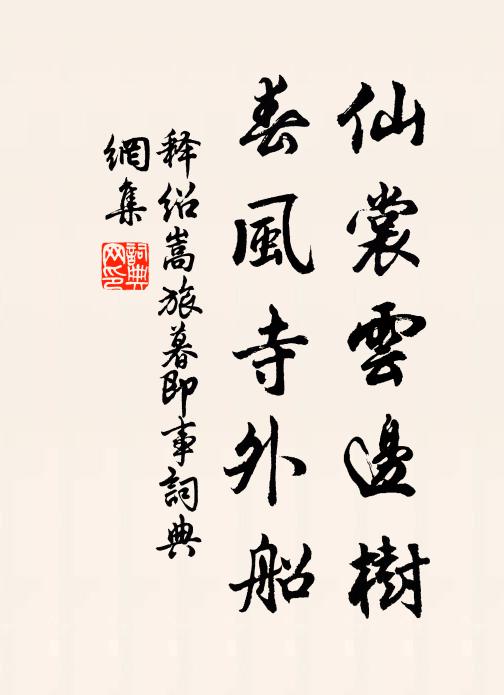 仙裳雲邊樹
春風寺外船
释紹嵩旅暮即事詞典
網集
詞典
网印